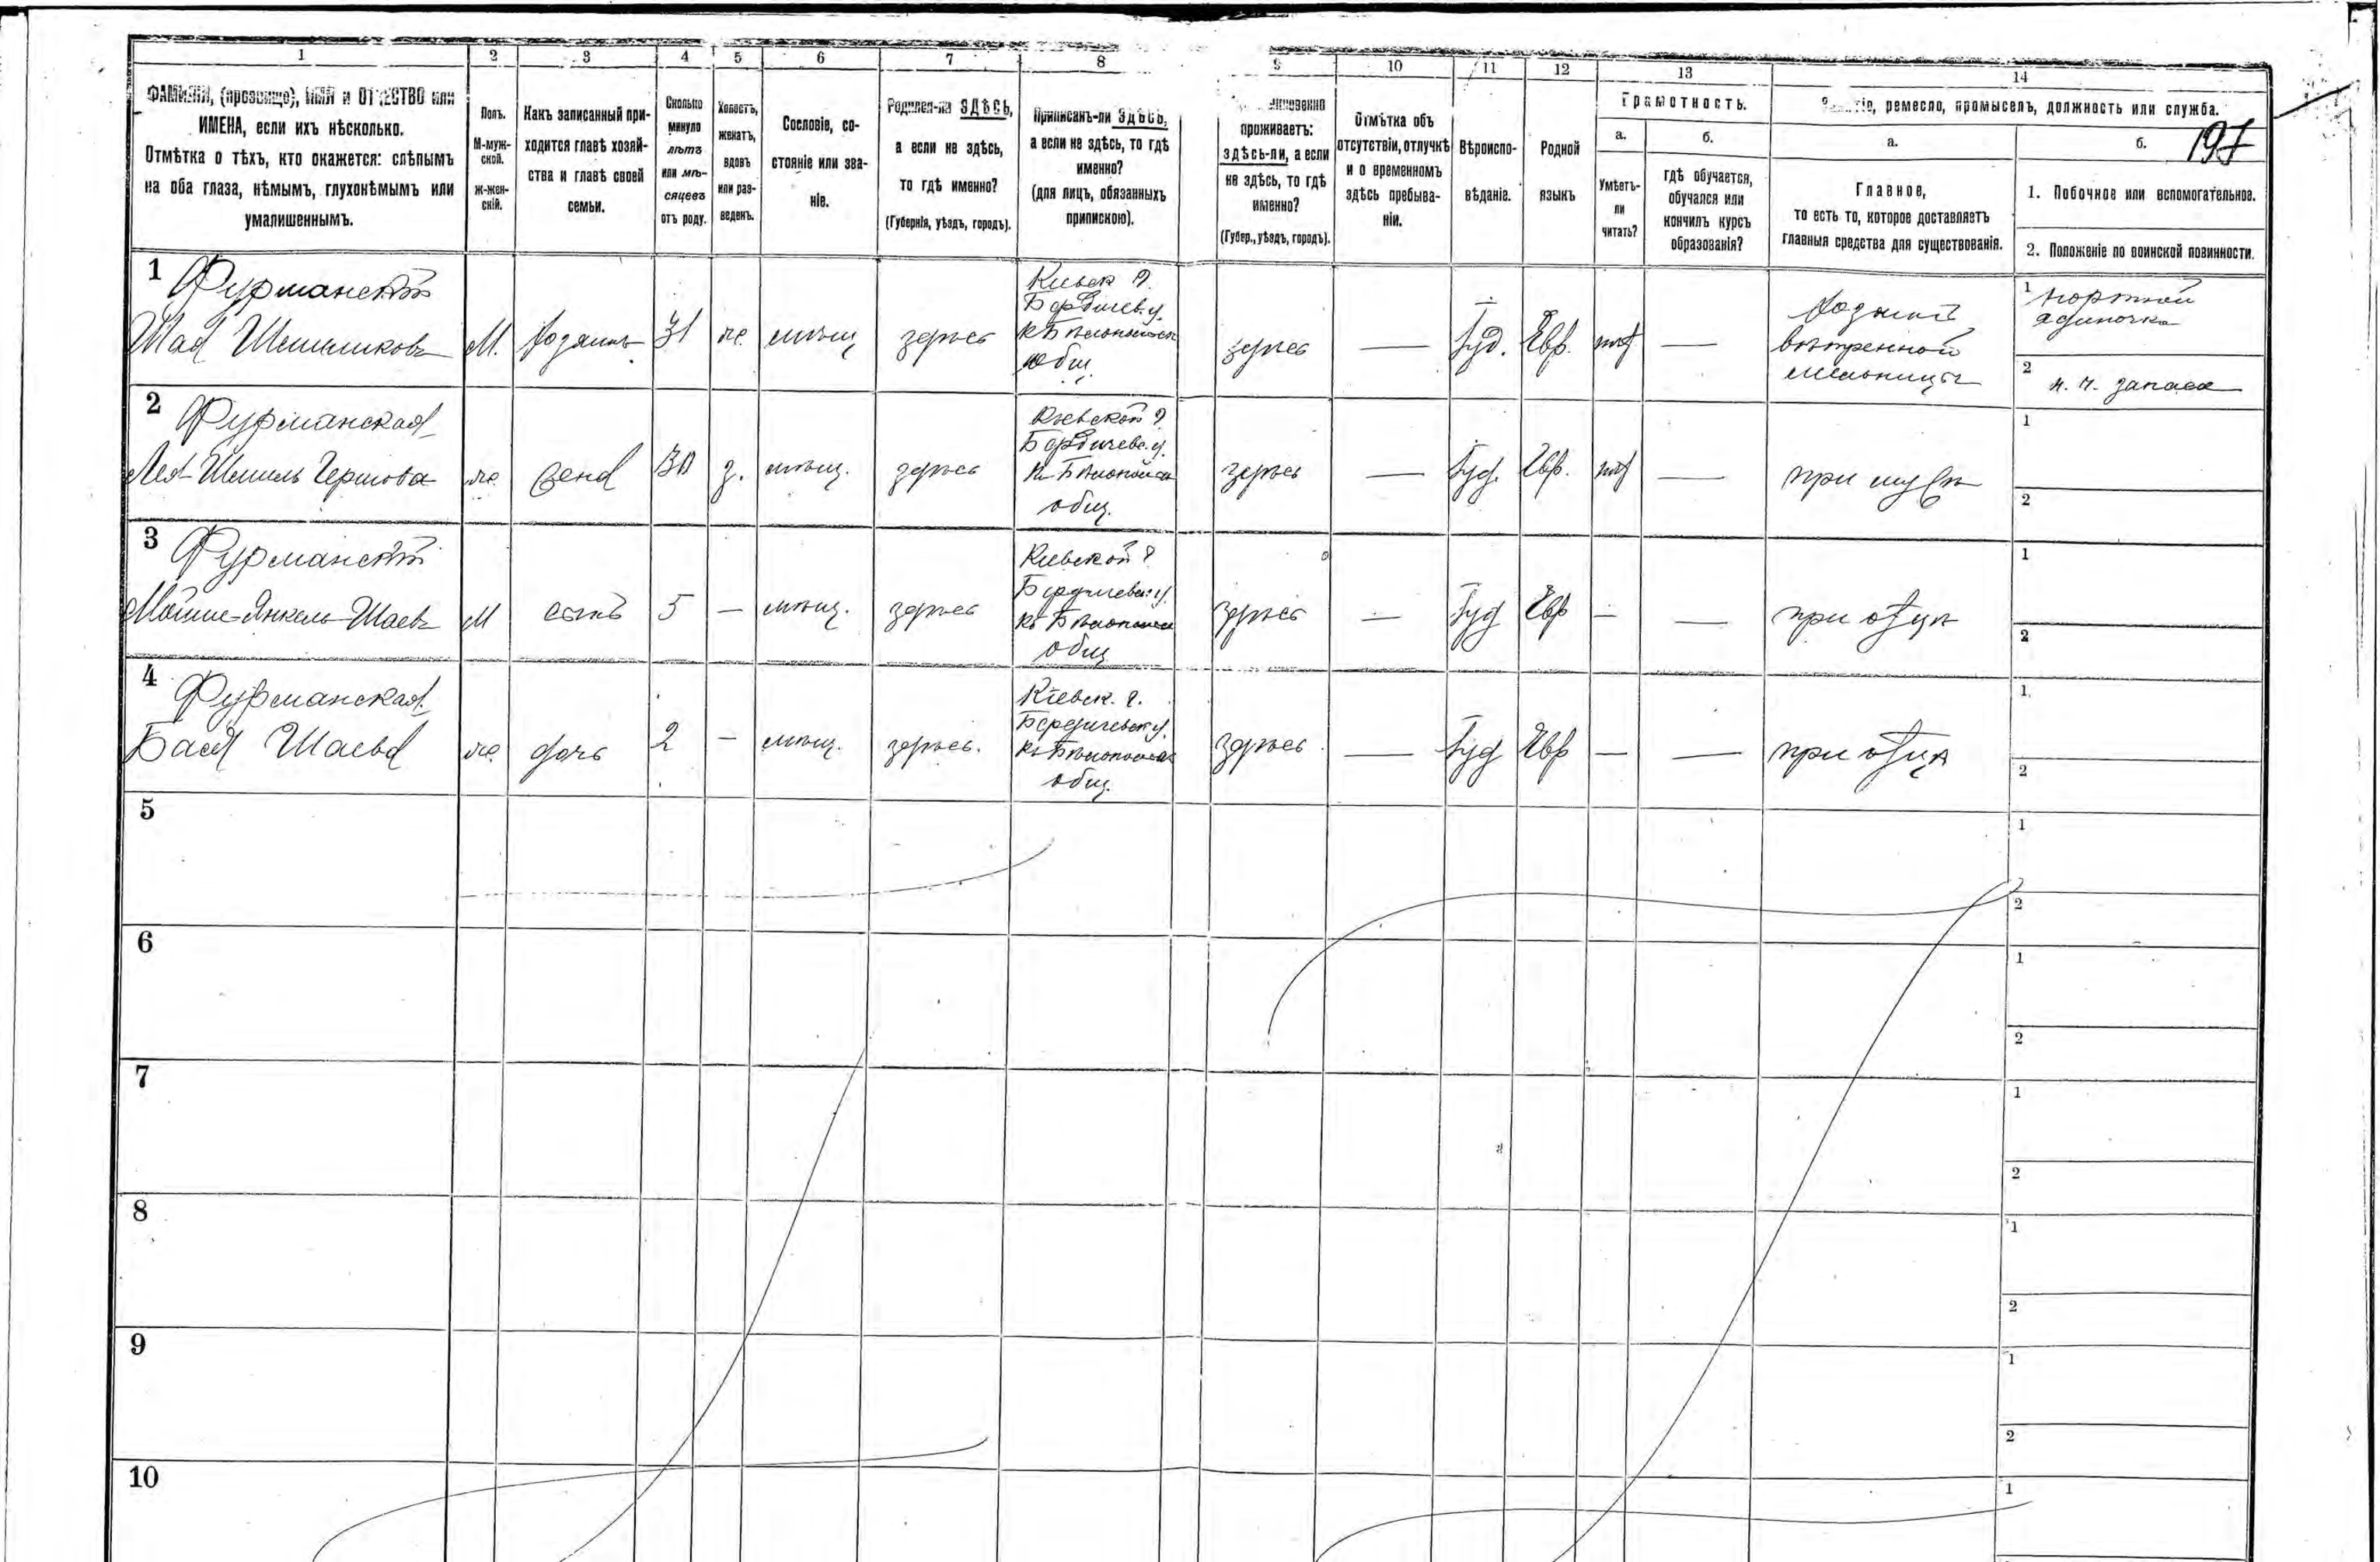 1 2 3 4 5 6 7 8 9 10 11 12 13 14
ФАМИЛІЯ, (прозвище), ИМЯ и ОТЧЕСТВО или
ИМЕНА, если ихъ нѣсколько.
Отмѣтка о тѣхъ, кто окажется: слѣпымъ
на оба глаза, нѣмымъ, глухонѣмымъ или
умалишеннымъ.
Полъ.
М-муж-
ской.
ж-жен-
скій.
Какъ записанный при-
ходится главѣ хозяй-
ства и главѣ своей
семьи.
Сколько
минуло
лѣтъ
или мѣ-
сяцевъ
отъ роду.
Холостъ,
женатъ,
вдовъ
или раз-
веденъ.
Сословіе, со-
стояніе или зва-
ніе.
Родился-ли ЗДѢСЬ,
а если не здѣсь,
то гдѣ именно?
(Губернія, уѣздъ, городъ).
Приписанъ-ли ЗДѢСЬ,
а если не здѣсь, то гдѣ
именно?
(для лицъ, обязанныхъ
припискою).
проживаетъ:
здѣсь-ли, а если
не здѣсь, то гдѣ
именно?
(Губер., уѣздъ, городъ).
Отмѣтка объ
отсутствіи, отлучкѣ
и о временномъ
здѣсь пребыва-
ніи.
Вѣроиспо-
вѣданіе.
Родной
языкъ
Грамотность.
а.
Умѣетъ-
ли
читать?
б.
гдѣ обучается,
обучался или
кончилъ курсъ
образованія?
ремесло, промыселъ, должность или служба.
а.
Главное,
то есть то, которое доставляетъ
главныя средства для существованія.
б.
197
1. Побочное или вспомогательное.
2. Положеніе по воинской повинности.
1 Фурманскій
Шая
М. хозяинъ 31 же. мѣщ здѣсь
Кіевск г.
Бердичев. у.
общ.
здѣсь — Іуд. Евр. —
вѣтренной
мельницы
1 портной
одиночка
2 н. ч. запаса
2 Фурманская
Лея
же жена 30 з. мѣщ. здѣсь
Кіевской г.
Бердичевс. у.
общ.
здѣсь — Іуд. Евр. —
при мужѣ
1
2
3 Фурманскій
Мошше-Янкель Шаевъ
М сынъ 5 — мѣщ. здѣсь
Кіевской г.
Бердичевск у.
общ
здѣсь — Іуд Евр — —
при отцѣ
1
2
4 Фурманская
Бася Шаева
же. дочь 2 — мѣщ. здѣсь.
Кіевск. г.
Бердичевск у.
общ.
здѣсь — Іуд Евр — —
при отцѣ
1
2
5
1
2
6
1
2
7
1
2
8
1
2
9
1
2
10
1